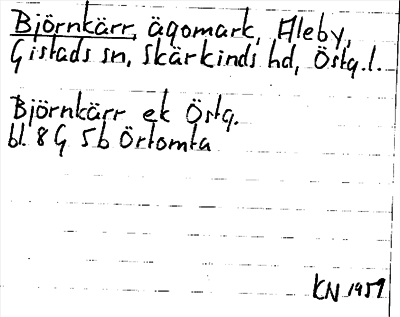 Björnkärr, ägomark, Aleby,
Gistads sn, Skärkinds hd, Östg.l.
Björnkärr ek Östg.
bl. 8G 5b Örtomta
KN 1957